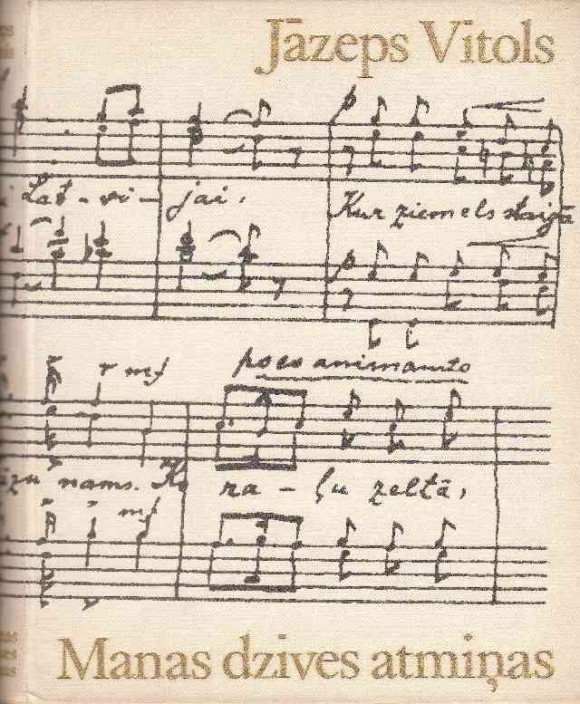 Jāzeps Vītols
Lat - vi - jai.
Kur ziemels staigā
mf poco animato
nams. Ko ra - ļu zeltā,
mf
Manas dzīves atmiņas